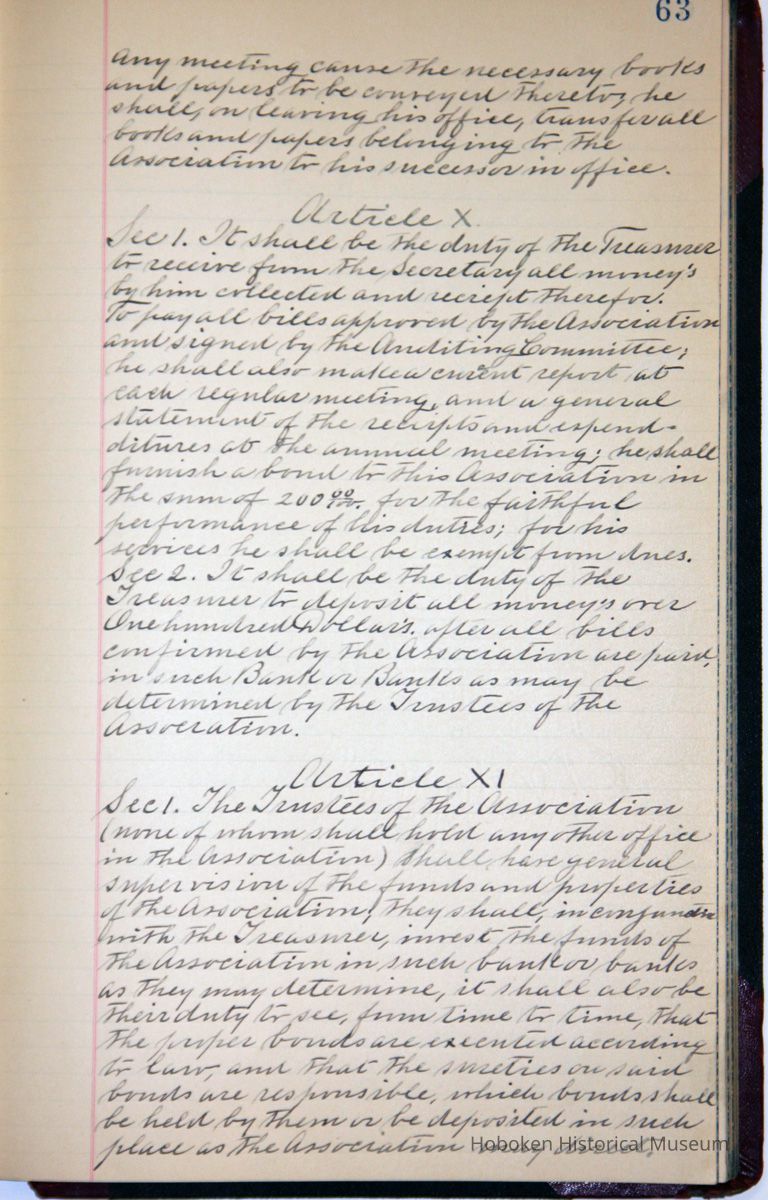 63
any meeting cause the necessary books
and papers to be conveyed thereto; he
shall, on leaving his office, transfer all
books and papers belonging to the
Association to his successor in office.
Article X.
Sec 1. It shall be the duty of the Treasurer
to receive from the Secretary all money's
by him collected and reciept therefor.
To pay all bills approved by the Association
and signed by the Auditing Committee;
he shall also make a current report at
each regular meeting, and a general
statement of the reciepts and expend-
ditures at the annual meeting; he shall
furnish a bond to this Association in
the sum of 200 00/100. for the faithful
performance of his duties; for his
services he shall be exempt from dues.
Sec 2. It shall be the duty of the
Treasurer to deposit all money's over
One hundred Dollars. after all bills
confirmed by the Association are paid,
in such Bank or Banks as may be
determined by the Trustees of the
Association.
Article XI
Sec 1. The Trustees of the Association
(none of whom shall hold any other office
in the Association) shall have general
supervision of the funds and properties
of the Association; they shall, in conjunction
with the Treasurer, invest the funds of
the Association in such bank or banks
as they may determine, it shall also be
their duty to see, from time to time, that
the proper bonds are executed according
to law, and that the sureties on said
bonds are responsible, which bonds shall
be held by them or be deposited in such
place as the Association
Hoboken Historical Museum